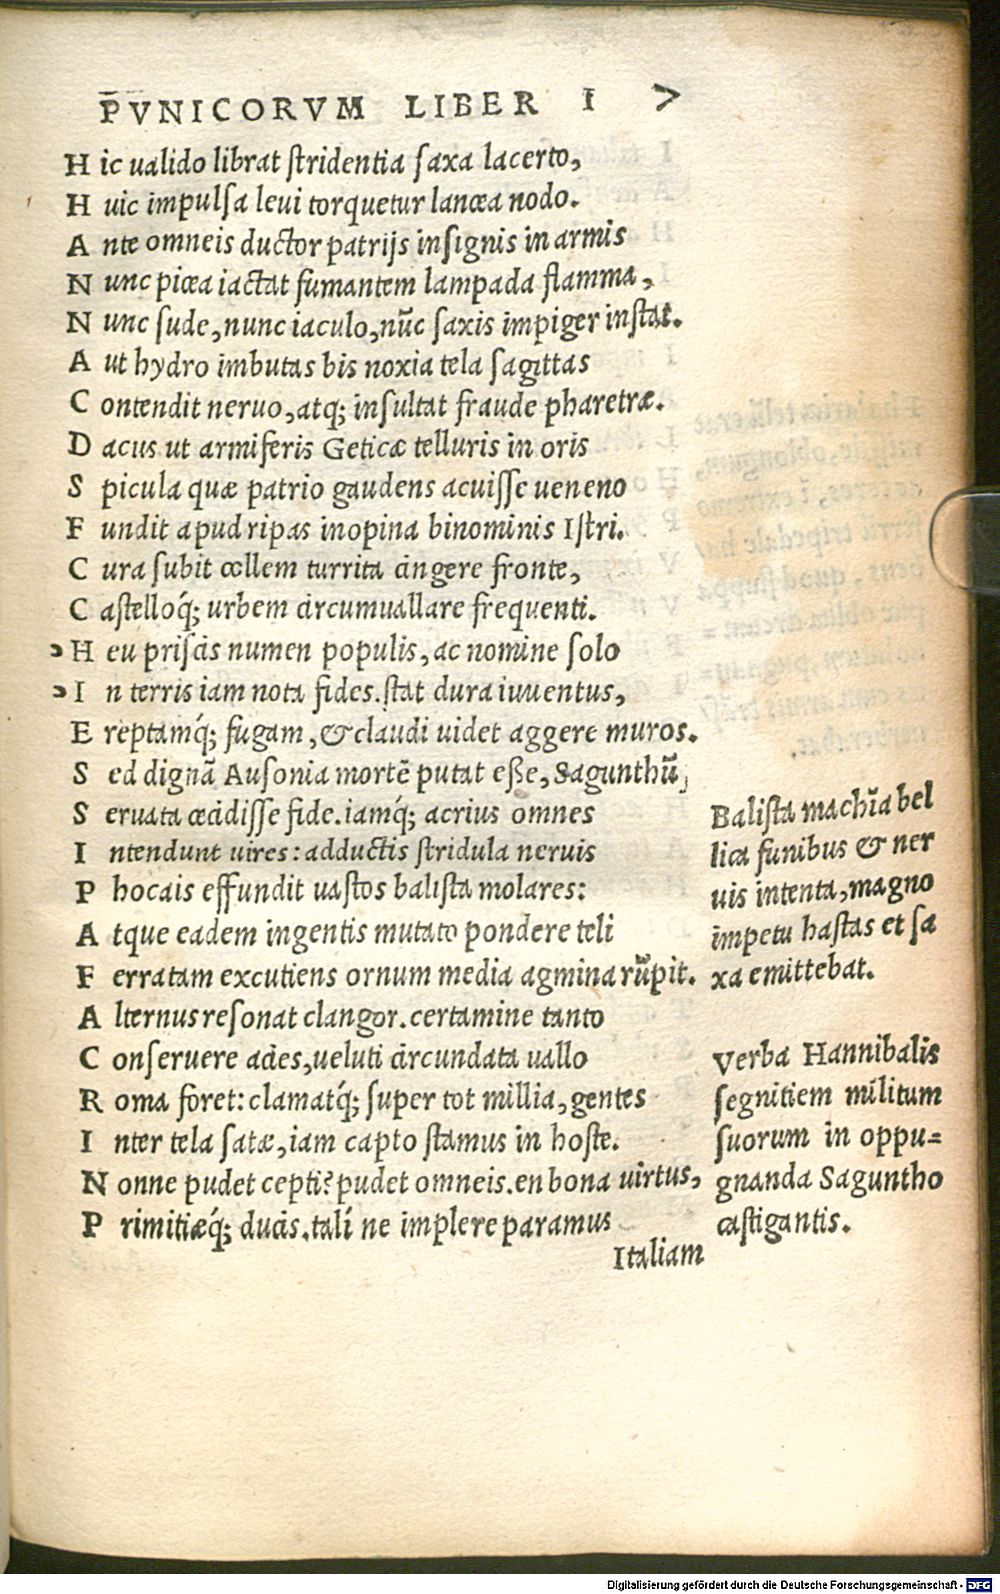 PVNICORVM LIBER I 7
H ic ualido librat stridentia saxa lacerto,
H uic impulsa leui torquetur lancea nodo.
A nte omneis ductor patrijs insignis in armis
N unc picea iactat fumantem lampada flamma,
N unc sude, nunc iaculo, nūc saxis impiger instat.
A ut hydro imbutas bis noxia tela sagittas
C ontendit neruo, atq; insultat fraude pharetræ.
D acus ut armiferis Geticæ telluris in oris
S picula quæ patrio gaudens acuisse ueneno
F undit apud ripas inopina binominis Istri.
C ura subit collem turrita cingere fronte,
C astelloq́; urbem circumuallare frequenti.
H eu priscis numen populis, ac nomine solo
I n terris iam nota fides. stat dura iuuentus,
E reptamq́; fugam, & claudi uidet aggere muros.
S ed dignā Ausonia mortē putat eße, Sagunthū,
S eruata cecidisse fide. iamq́; acrius omnes
I ntendunt uires: adductis stridula neruis
P hocais effundit uastos balista molares:
A tque eadem ingentis mutato pondere teli
F erratam excutiens ornum media agmina rūpit.
A lternus resonat clangor. certamine tanto
C onseruere acies, ueluti circundata uallo
R oma foret: clamatq́; super tot millia, gentes
I nter tela satæ, iam capto stamus in hoste.
N onne pudet cepti? pudet omneis. en bona uirtus,
P rimitiæq́; ducis. tali ne implere paramus
Italiam
Balista machīa bel
lica funibus & ner
uis intenta, magno
impetu hastas et sa
xa emittebat.
Verba Hannibalis
segnitiem militum
suorum in oppu=
gnanda Saguntho
castigantis.
Digitalisierung gefördert durch die Deutsche Forschungsgemeinschaft - DFG